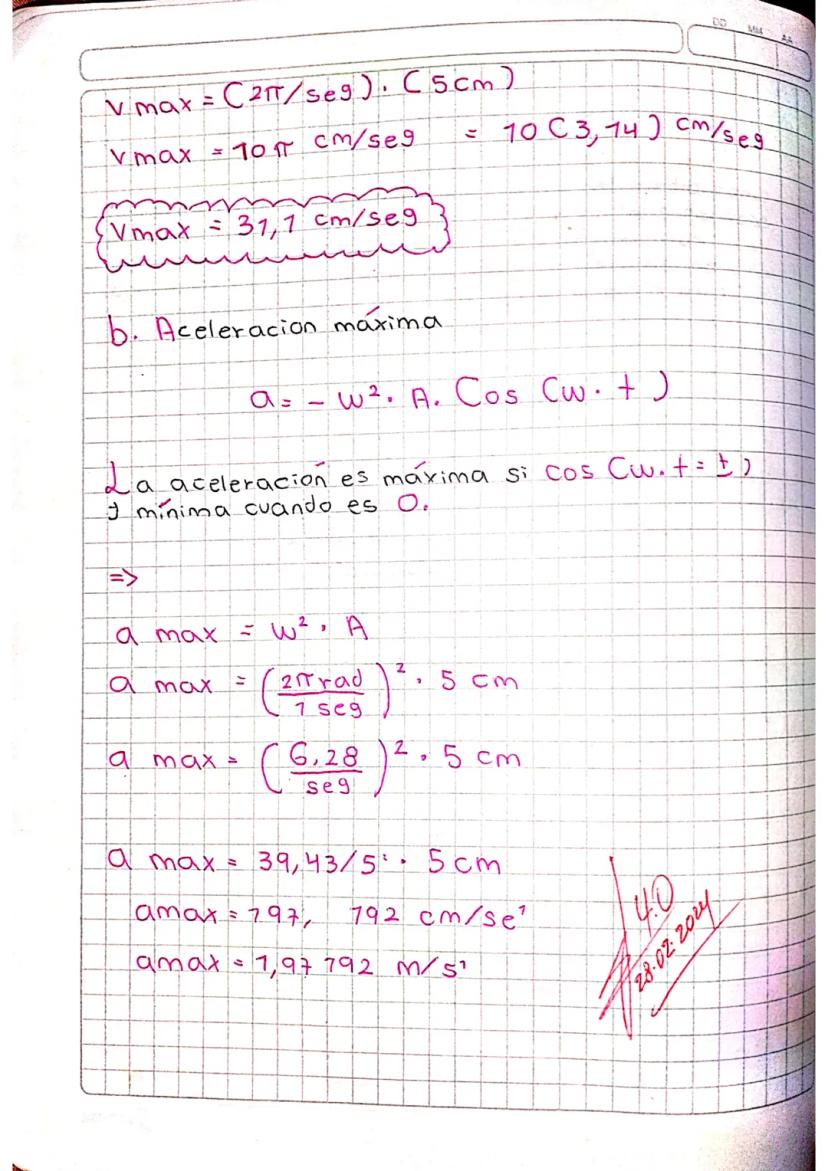 DD MM AA
v max = (2π/seg). (5cm)
v max = 10π cm/seg = 10 (3,14) cm/seg
Vmax = 31,1 cm/seg
b. Aceleracion máxima
a = - w². A. Cos (w. t)
La aceleración es máxima si cos (w. t = ±)
y mínima cuando es 0.
=>
a max = w². A
a max = (2π rad / 1 seg)². 5 cm
a max = (6,28 / seg)². 5 cm
a max = 39,43/s². 5 cm
amax = 197, 192 cm/se²
amax = 1,97 192 m/s²
4.0
28.02.2024